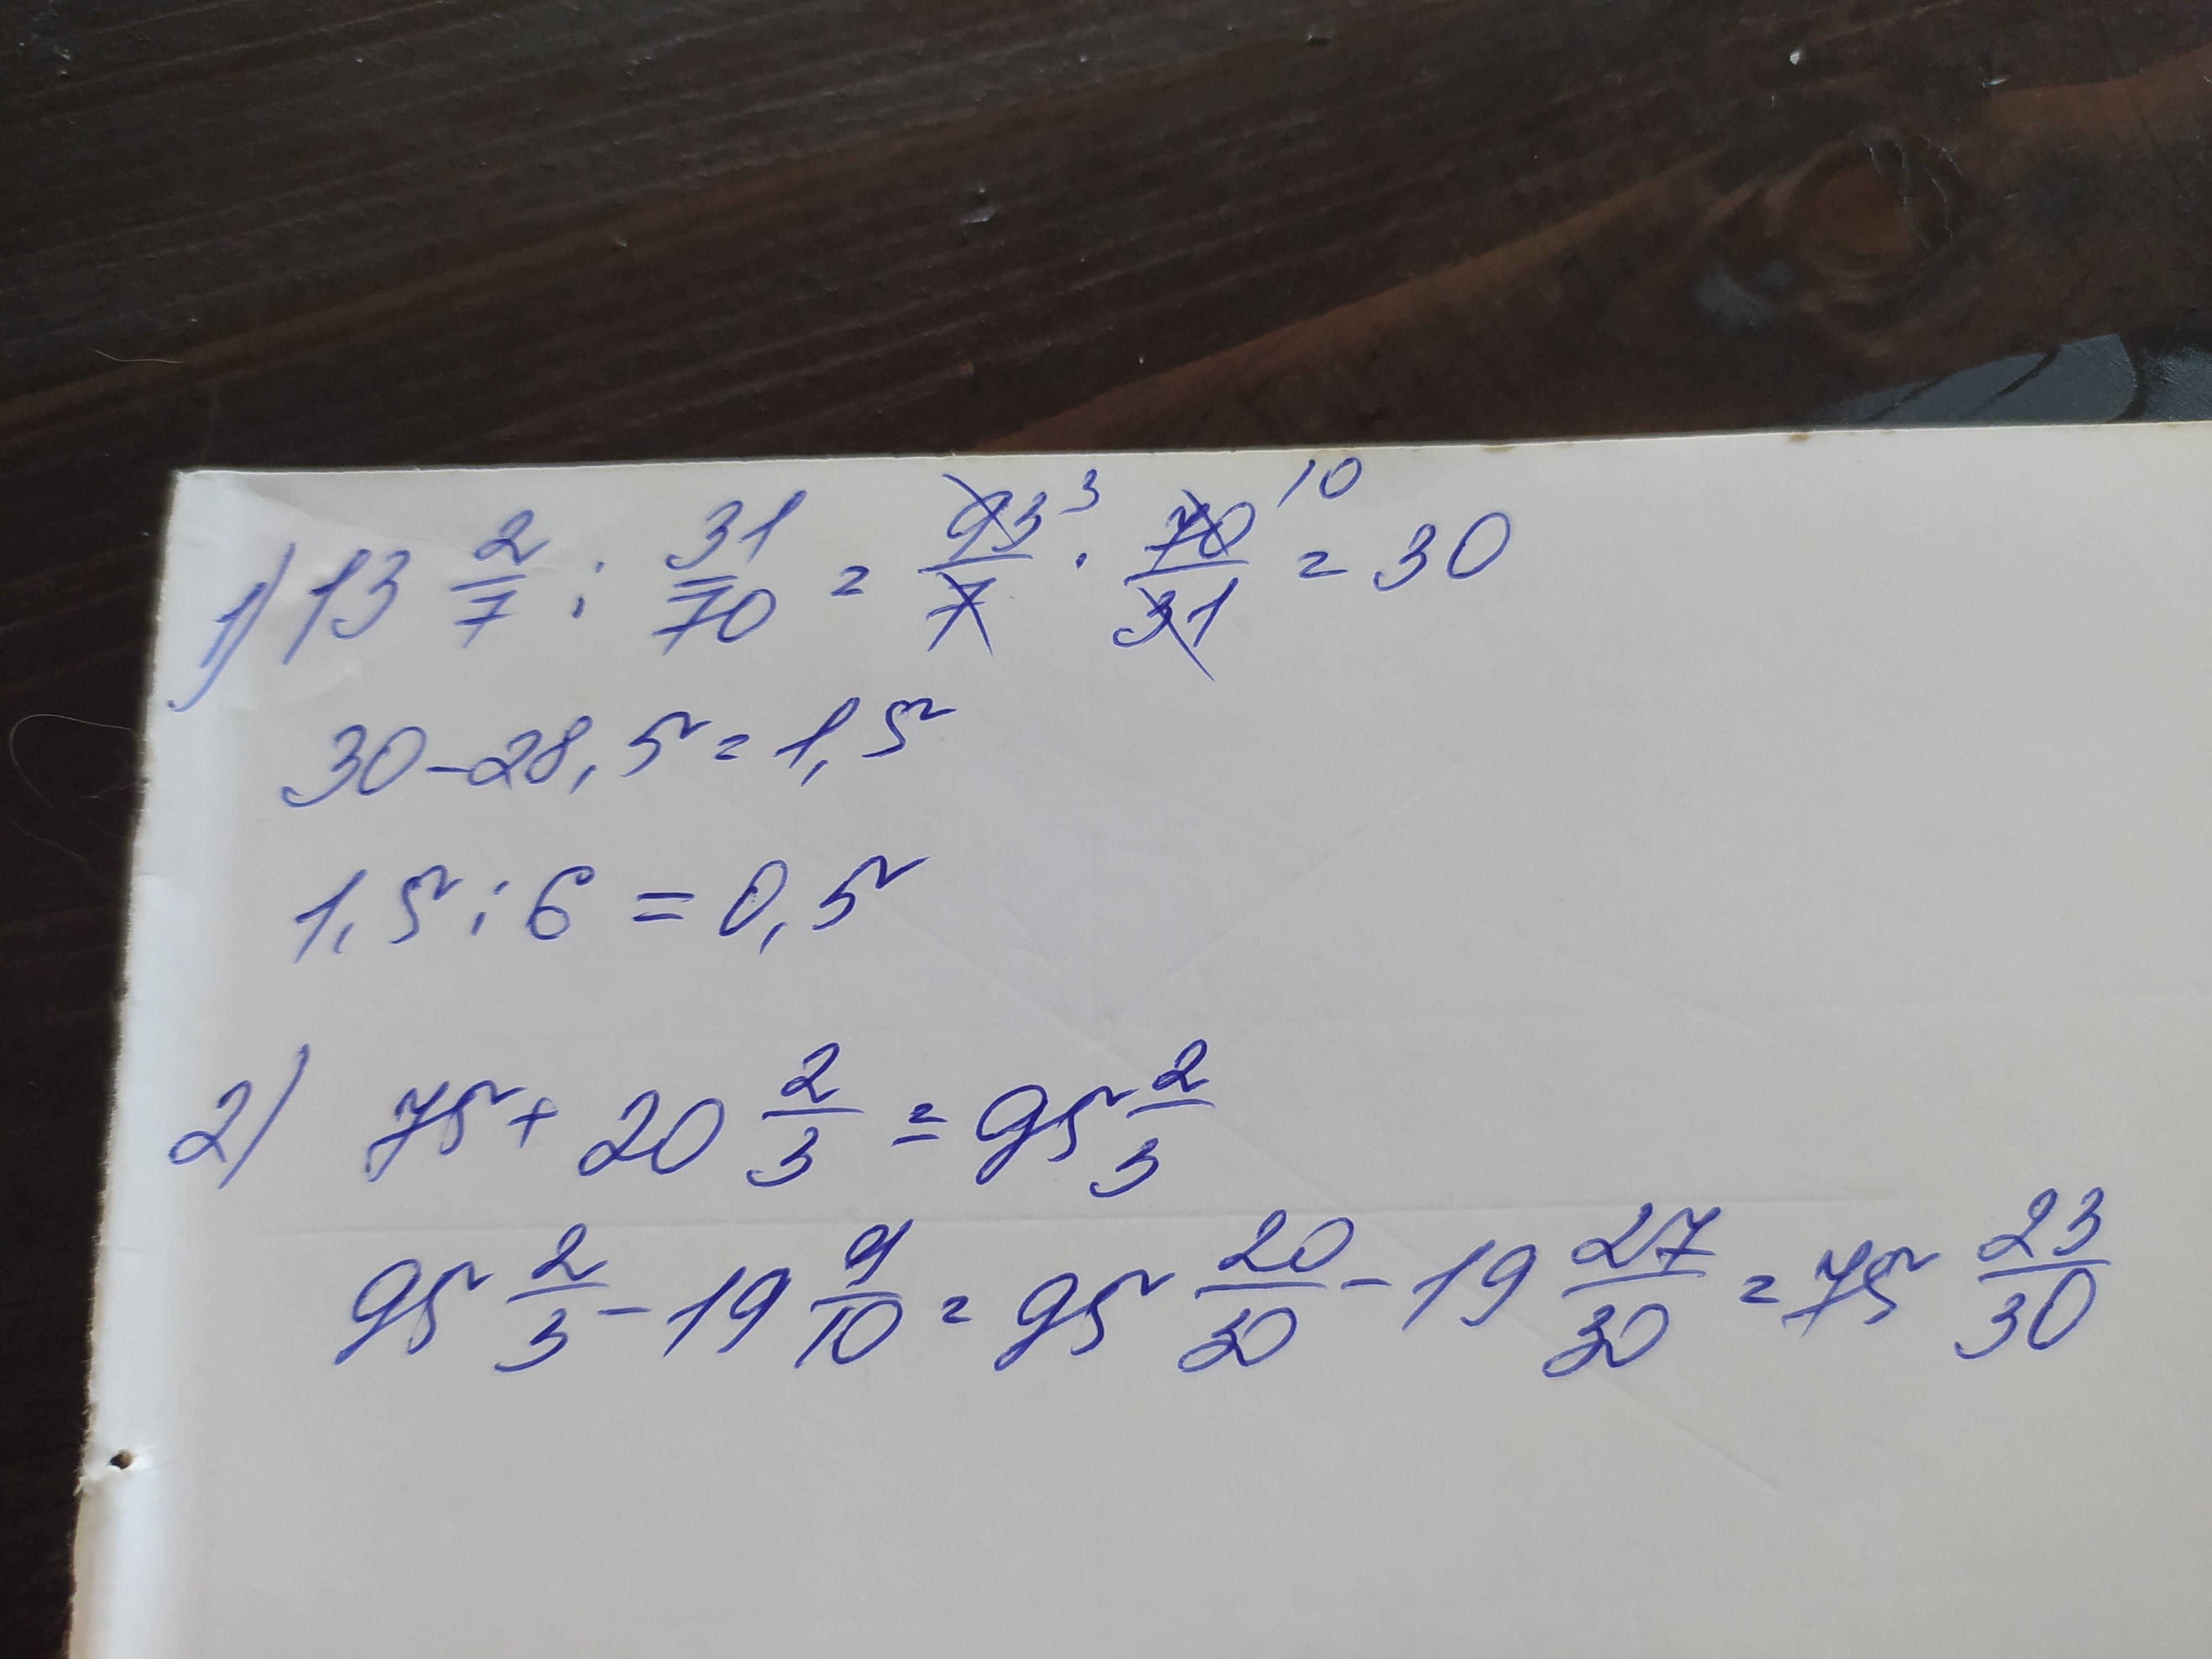 1) 13 2/7 : 31/70 = 93/7 3 · 70/31 10 = 30
30 - 28,5 = 1,5
1,5 : 6 = 0,5
2) 75 + 20 2/3 = 95 2/3
95 2/3 - 19 9/10 = 95 20/30 - 19 27/30 = 75 23/30